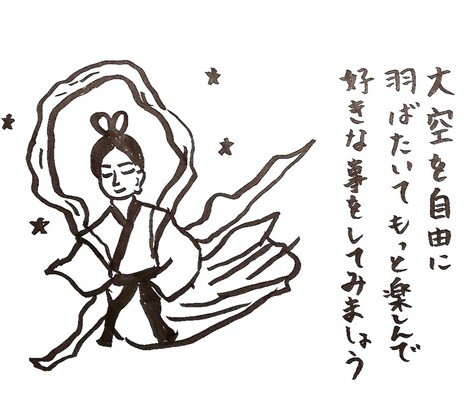 大空を自由に
羽ばたいてもっと楽しんで
好きな事をしてみましょう